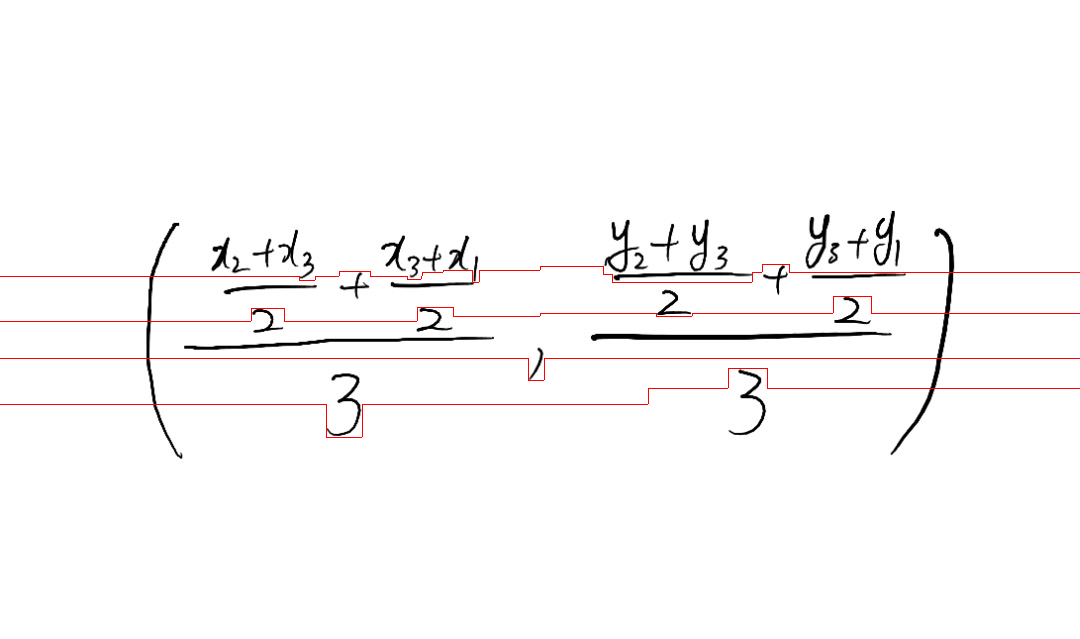 $\left( \frac{\frac{x_2+x_3}{2} + \frac{x_3+x_1}{2}}{3}, \frac{\frac{y_2+y_3}{2} + \frac{y_3+y_1}{2}}{3} \right)$